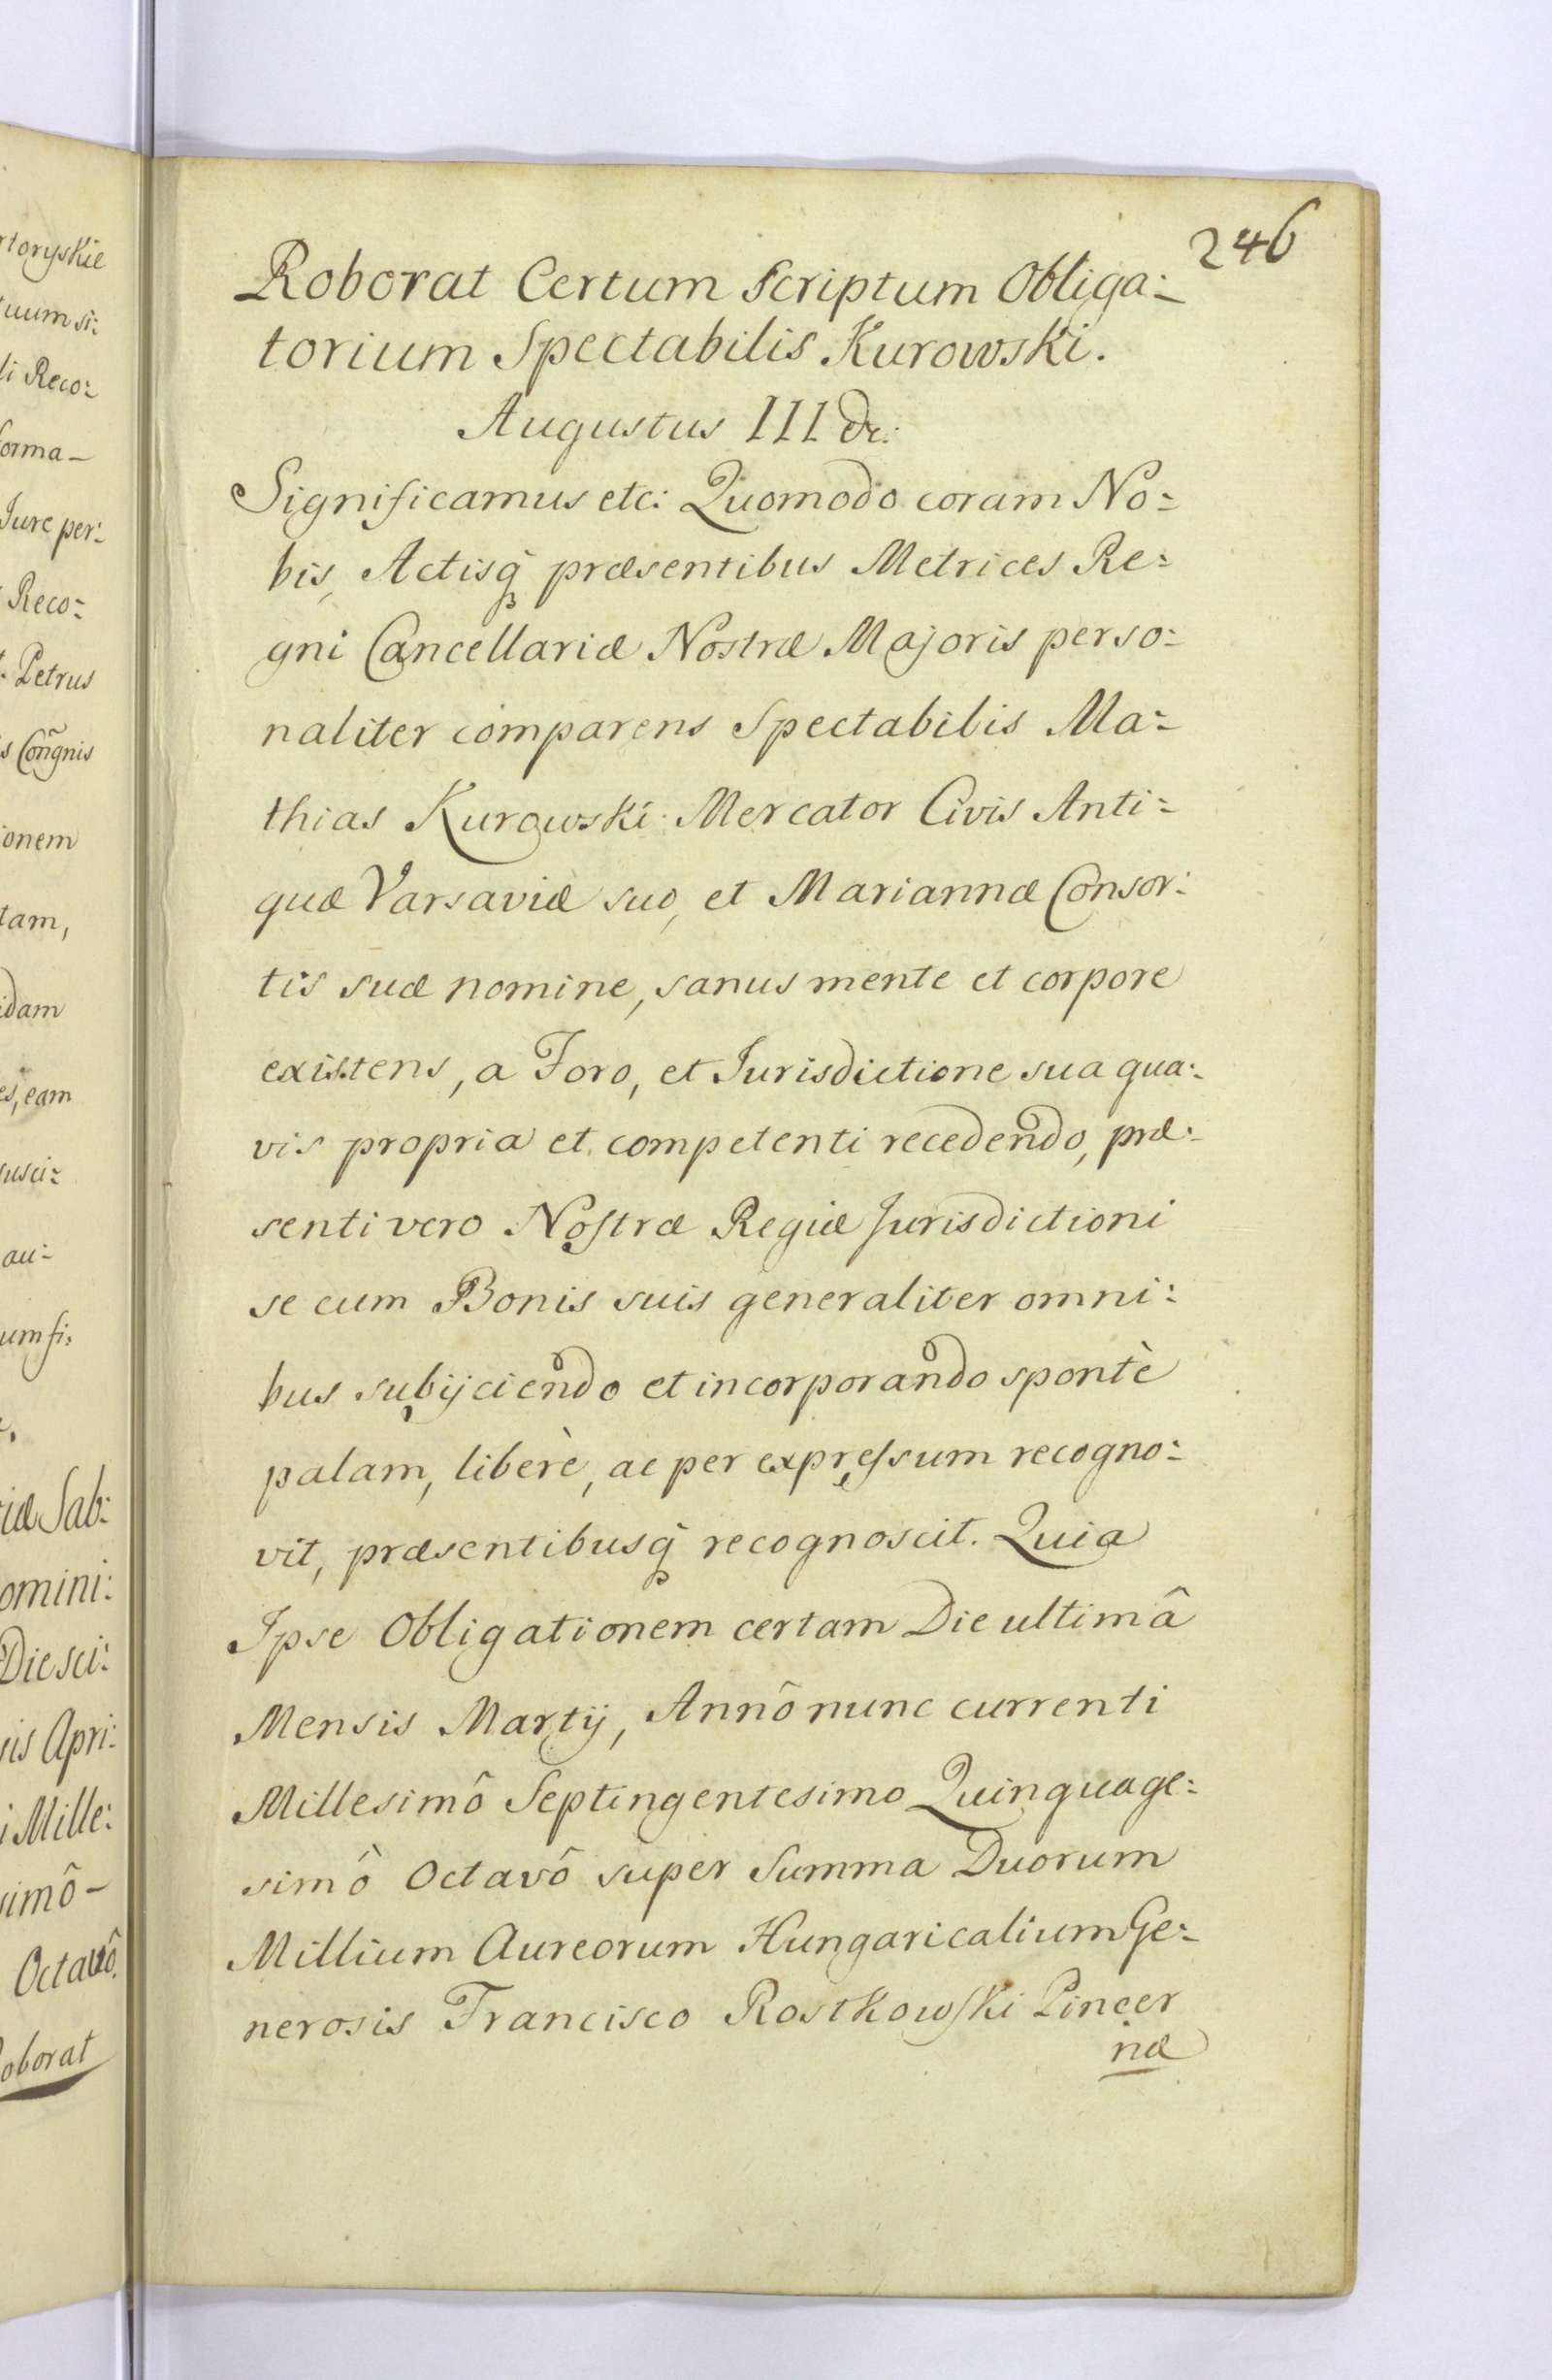 rtoryskie
uum si:
li Reco:
forma-
Jure per:
Reco:
Petrus
s Congnis
ionem
tam,
idam
es, eam
susci:
au:
um fi:
iæ Sab:
omini:
Die sci:
sis Apri:
i Mille:
simô-
Octavô.
Roborat
246
Roborat Certum Scriptum Obliga:
torium Spectabilis Kurowski.
Augustus III &c:
Significamus etc: Quomodo coram No:
bis, Actisq̃ præsentibus Metrices Re:
gni Cancellariæ Nostræ Majoris perso:
naliter comparens Spectabilis Ma:
thias Kurowski Mercator Civis Anti:
quæ Varsaviæ suo, et Mariannæ Consor:
tis suæ nomine, sanus mente et corpore
existens, a Foro, et Jurisdictione sua qua:
vis propria et competenti recedendo, præ:
senti vero Nostræ Regiæ Jurisdictioni
se cum Bonis suis generaliter omni:
bus subijciendo et incorporando spontè
palam, liberè, ac per expressum recogno:
vit, præsentibusq̃ recognoscit. Quia
Ipse Obligationem certam Die ultimâ
Mensis Martij, Annô nunc currenti
Millesimô Septingentesimo Quinquage:
simô Octavô super Summa Duorum
Millium Aureorum Hungaricalium Ge:
nerosis Francisco Rostkowski Pincer
næ